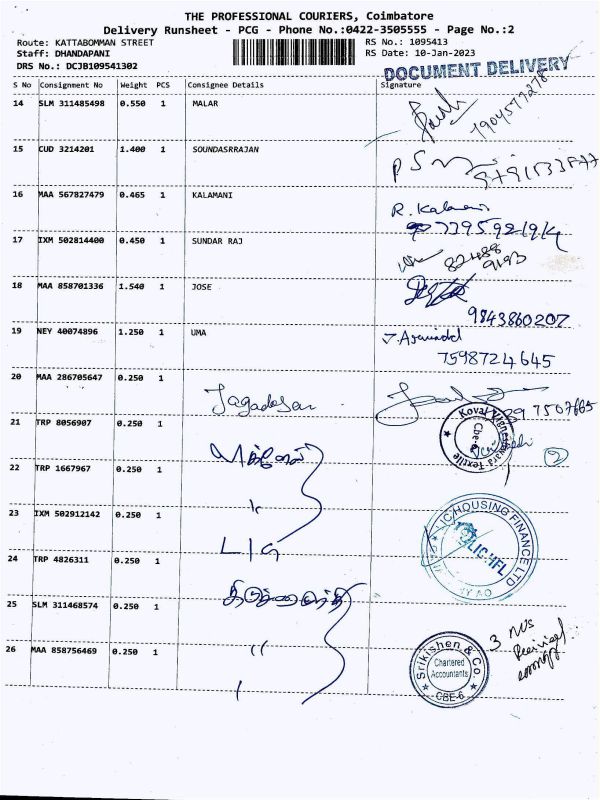 THE PROFESSIONAL COURIERS, Coimbatore
Delivery Runsheet - PCG - Phone No.:0422-3505555 - Page No.:2
Route: KATTABOMMAN STREET
Staff: DHANDAPANI
DRS No.: DCJB109541302
RS No.: 1095413
RS Date: 10-Jan-2023
DOCUMENT DELIVERY
S No Consignment No Weight PCS Consignee Details Signature
14 SLM 311485498 0.550 1 MALAR
15 CUD 3214201 1.400 1 SOUNDASRRAJAN
16 MAA 567827479 0.465 1 KALAMANI R. Kalamani
17 IXM 502814400 0.450 1 SUNDAR RAJ
82488
9193
18 MAA 858701336 1.540 1 JOSE
9843860207
19 NEY 40074896 1.250 1 UMA
7598724645
20 MAA 286705647 0.250 1 Jagadesan
21 TRP 8056907 0.250 1
Kovai Vigneshwara Textile
22 TRP 1667967 0.250 1
23 IXM 502912142 0.250 1 LIG
LIC HOUSING FINANCE LTD
LICHFL
24 TRP 4826311 0.250 1
25 SLM 311468574 0.250 1
26 MAA 858756469 0.250 1 "
Srikishen & Co
Chartered
Accountants
CBE-6
3 Nos
Received